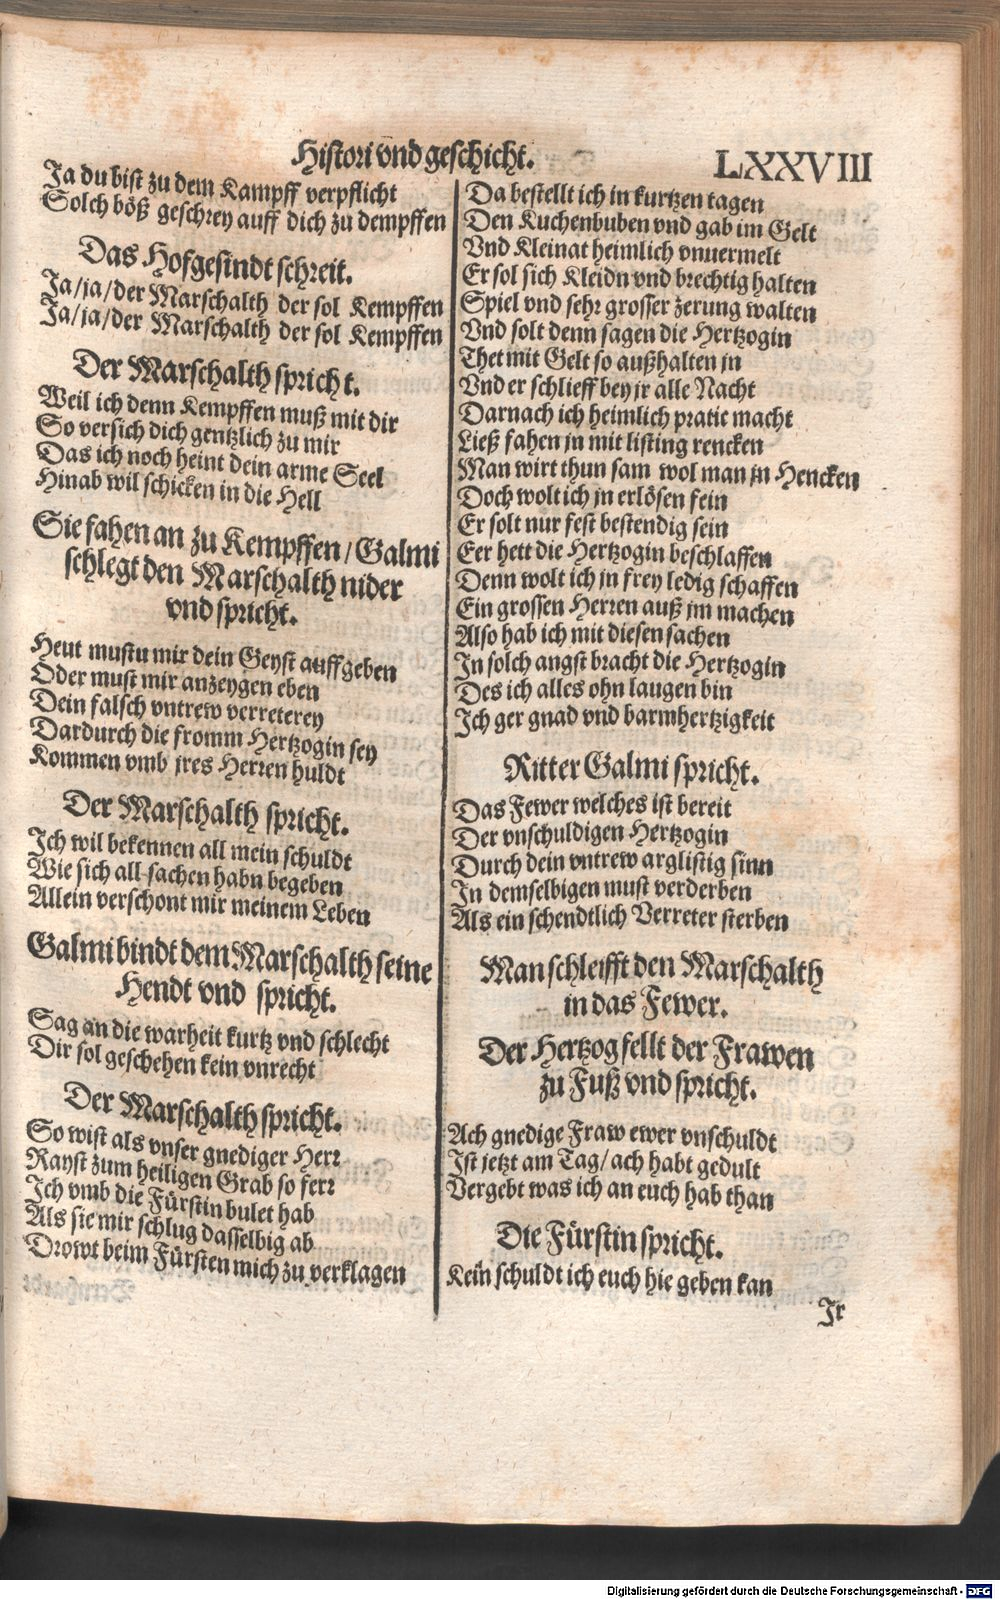 Histori vnd geschicht. LXXVIII
Ja du bist zu dem Kampff verpflicht
Solch böß geschrey auff dich zu dempffen
Das Hofgesindt schreit.
Ja/ja/der Marschalth der sol Kempffen
Ja/ja/der Marschalth der sol Kempffen
Der Marschalth spricht.
Weil ich denn Kempffen muß mit dir
So versich dich gentzlich zu mir
Das ich noch heint dein arme Seel
Hinab wil schicken in die Hell
Sie fahen an zu Kempffen/Galmi
schlegt den Marschalth nider
vnd spricht.
Heut mustu mir dein Geyst auffgeben
Oder must mir anzeygen eben
Dein falsch vntrew verreterey
Dardurch die fromm Hertzogin sey
Kommen vmb jres Herren huldt
Der Marschalth spricht.
Ich wil bekennen all mein schuldt
Wie sich all sachen habn begeben
Allein verschont mir meinem Leben
Galmi bindt dem Marschalth seine
Hendt vnd spricht.
Sag an die warheit kurtz vnd schlecht
Dir sol geschehen kein vnrecht
Der Marschalth spricht.
So wist als vnser gnediger Herr
Rayst zum heiligen Grab so ferr
Ich vmb die Fürstin bulet hab
Als sie mir schlug dasselbig ab
Drowt beim Fürsten mich zu verklagen
Da bestellt ich in kurtzen tagen
Den Kuchenbuben vnd gab im Gelt
Vnd Kleinat heimlich vnuermelt
Er sol sich Kleidn vnd brechtig halten
Spiel vnd sehr grosser zerung walten
Vnd solt denn sagen die Hertzogin
Thet mit Gelt so außhalten jn
Vnd er schlieff bey jr alle Nacht
Darnach ich heimlich pratic macht
Ließ fahen jn mit listing rencken
Man wirt thun sam wol man jn Hencken
Doch wolt ich jn erlösen fein
Er solt nur fest bestendig sein
Eer hett die Hertzogin beschlaffen
Denn wolt ich jn frey ledig schaffen
Ein grossen Herren auß jm machen
Also hab ich mit diesen sachen
In solch angst bracht die Hertzogin
Des ich alles ohn laugen bin
Ich ger gnad vnd barmhertzigkeit
Ritter Galmi spricht.
Das Fewer welches ist bereit
Der vnschuldigen Hertzogin
Durch dein vntrew arglistig sinn
In demselbigen must verderben
Als ein schendtlich Verreter sterben
Man schleifft den Marschalth
in das Fewer.
Der Hertzog fellt der Frawen
zu Fuß vnd spricht.
Ach gnedige Fraw ewer vnschuldt
Ist jetzt am Tag/ach habt gedult
Vergebt was ich an euch hab than
Die Fürstin spricht.
Kein schuldt ich euch hie geben kan
Jr
Digitalisierung gefördert durch die Deutsche Forschungsgemeinschaft - DFG